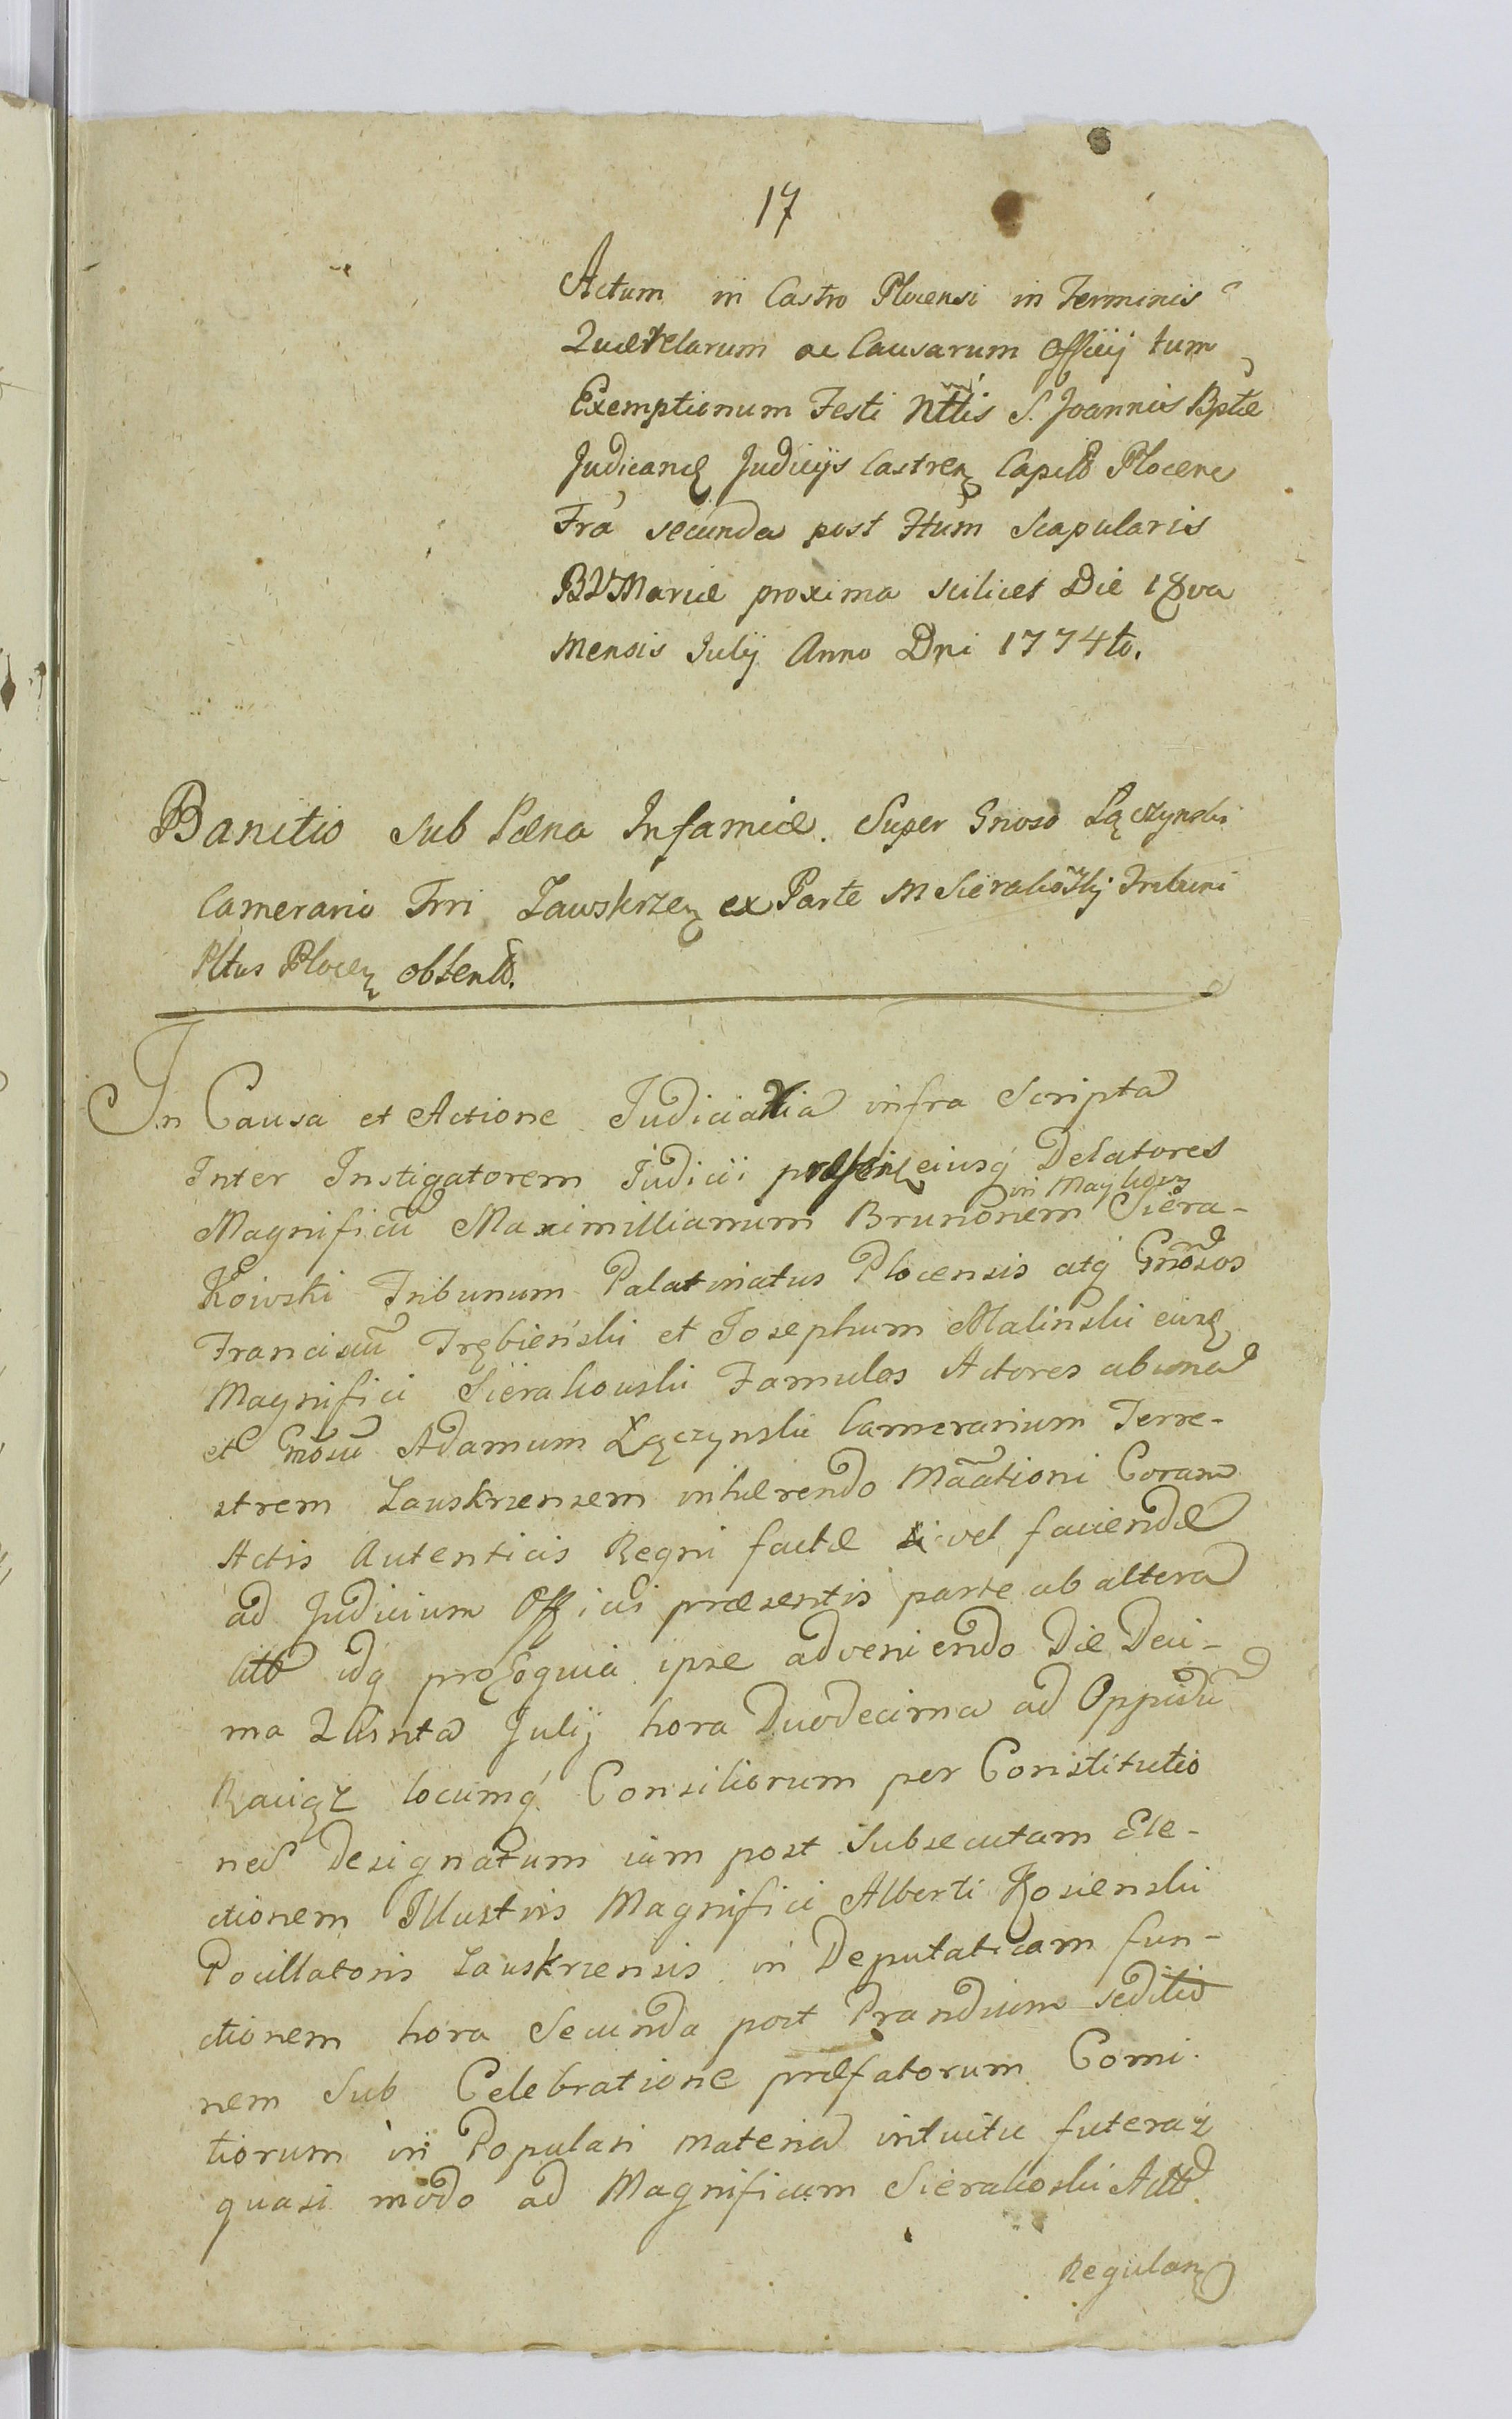 17
Actum in Castro Plocensi in Terminis
Quærelarum ac Causarum Officij tum
Exemptionum Festi Nttis S. Joannis Bptæ
Judicand Judicijs Castren Capeld Plocen
Fra secunda post Ftum Scapularis
BVMariæ proxima scilicet Die 18va
Mensis Julij Anno Dni 1774to.
Banitio sub Pæna Infamiæ. Super Gnoso Łączynski
Camerario Trri Zawskrzen ex Parte M Sierakowskij Tribuni
Pltus Plocen obtenta.
In Causa et Actione Judiciaria infra Scripta
Inter Instigatorem Judicii eiusq Delatores
in
Magnificu Maximillianum Brunonem Siera-
kowski Tribunum Palatinatus Plocensis atq Gnosos
Franciscu Trębieński et Josephum Malinski eiusd
Magnifici Sierakouski Famulos Actores ab una
et Gnosu Adamum Łączynski Camerarium Terre-
strem Zauskrzensem inhærendo Maationi Coram
Actis Autenticis Regni factæ vel faciendæ
ad Judicium Officii præsentis parte ab altera
idq pro eo quia ipse adveniendo Die Deci-
ma Quinta Julij hora Duodecima ad Oppidu
Raciąz locumq Consiliorum per Constitutio
nes Designatum iam post Subsecutam Ele-
ctionem Illustris Magnifici Alberti Kosienski
Pocillatoris Zauskrzensis in Deputaticam fun-
ctionem hora Secunda post Prandium seditio
nem Sub Celebratione præfatorum Comi-
tiorum in Populari materia intuitu futeraż
quasi modo ad Magnificum Sierakoski
Regulan